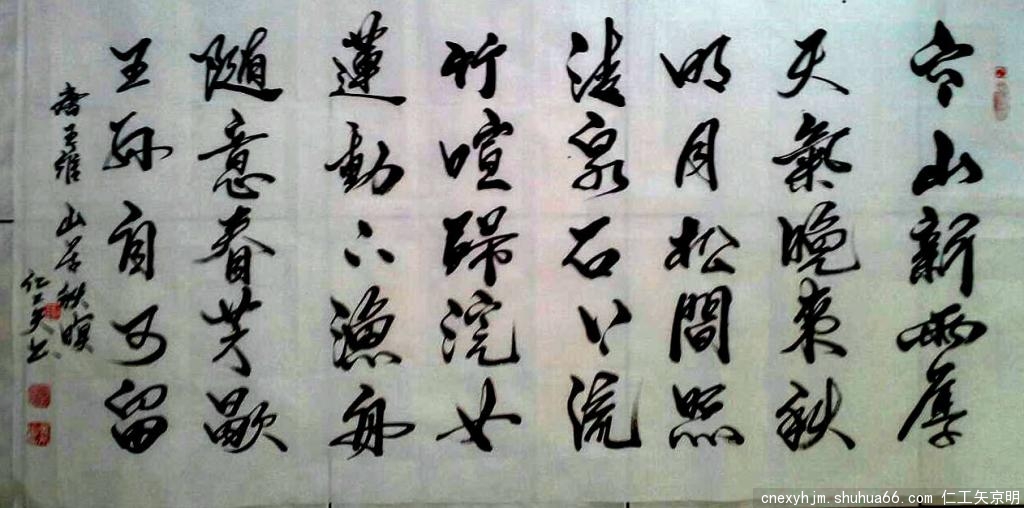 空山新雨後
天氣晚來秋
明月松間照
清泉石上流
竹喧歸浣女
蓮動下漁舟
随意春芳歇
王孫自可留
唐王維 山居秋暝
仁工矢書
cnexyhjm.shuhua66.com 仁工矢京明